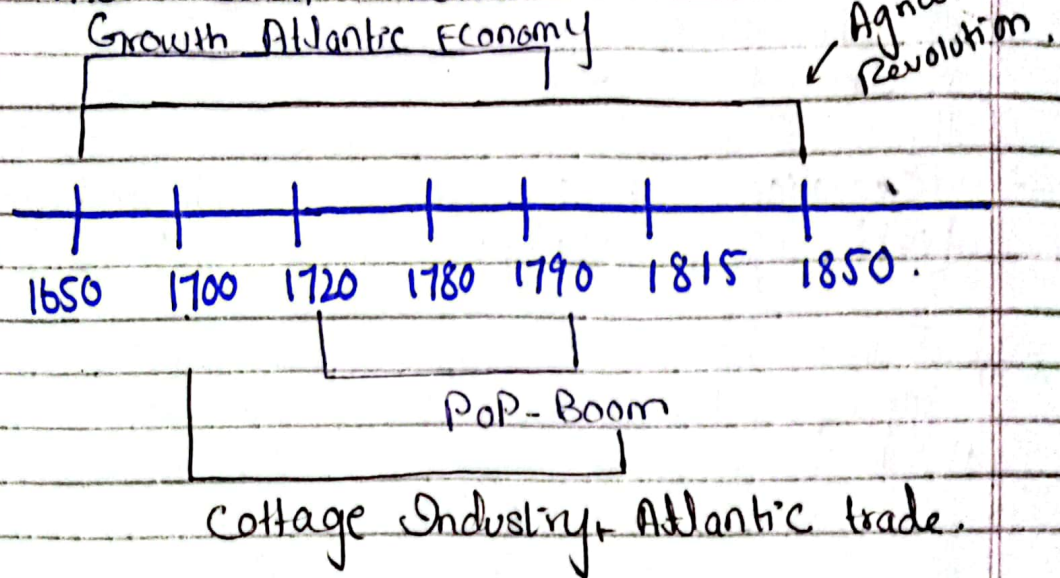 Growth Atlantic Economy
Revolution.
1650 1700 1720 1780 1790 1815 1850.
POP-Boom
Cottage Industry, Atlantic trade.